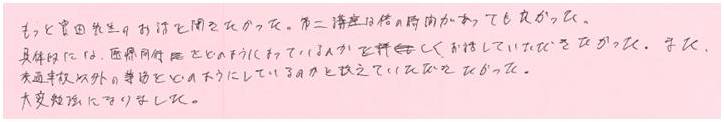 もっと宮田先生のお話を聞きたかった。第二講座は倍の時間があっても良かった。
具体的には、医療同行をどのように行っているのかを詳しくお話していただきたかった。また、
交通事故以外の事故をどのようにしているのかを教えていただきたかった。
大変勉強になりました。